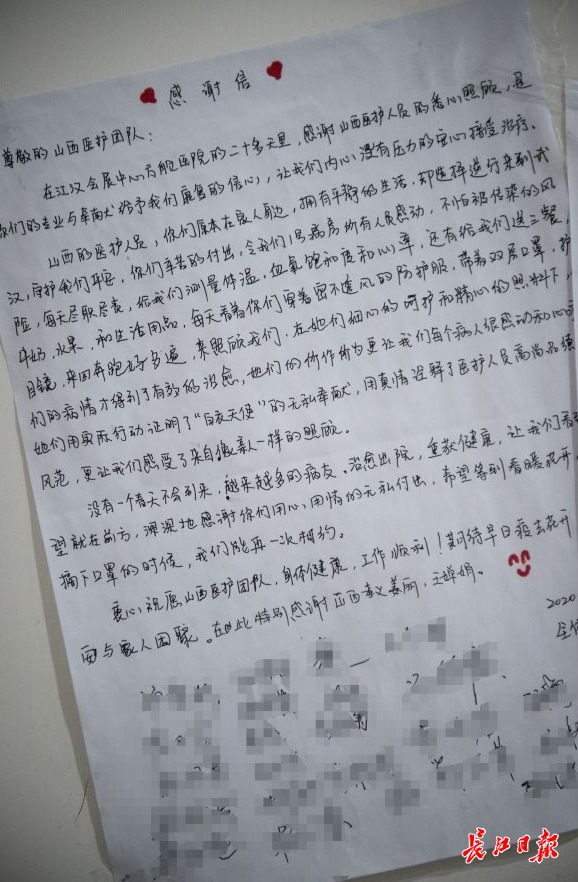 感谢信
尊敬的山西医护团队:
在江汉会展中心方舱医院的二十多天里,感谢山西医护人员的悉心照顾,是
你们的专业与奉献给予我们康复的信心,让我们内心没有压力的安心接受治疗。
山西的医护人员,你们原本在家人身边,拥有平静的生活,却选择逆行来到武
汉,守护我们耳臣,你们辛苦的付出,令我们1号病房所有人员感动,不怕被传染的风
险,每天尽职尽责,给我们测量体温,血氧饱和度和心率,还有给我们送三餐,
牛奶,水果,和生活用品,每天看着你们穿着密不透风的防护服,带着双层口罩,护
目镜,来回奔跑好多遍,来照顾我们,在她们细心的呵护和精心的照料下,
们的病情才得到了有效的治愈,她们的所作所为更让我们每个病人很感动和心
她们用实际行动证明了“白衣天使”的无私奉献,用真情诠释了医护人员高尚品德
风范,更让我们感受了来自像亲人一样的照顾。
没有一个春天不会到来,越来越多的病友,治愈出院,重获健康,让我们看到
望就在前方,深深地感谢你们用心,用情的无私付出,希望等到春暖花开,
摘下口罩的时候,我们能再一次相约。
衷心祝愿山西医护团队,身体健康,工作顺利!期待早日疫去花开
与家人团聚。在此特别感谢山西孝义姜丽,王婵娟。
2020
全体
长江日报